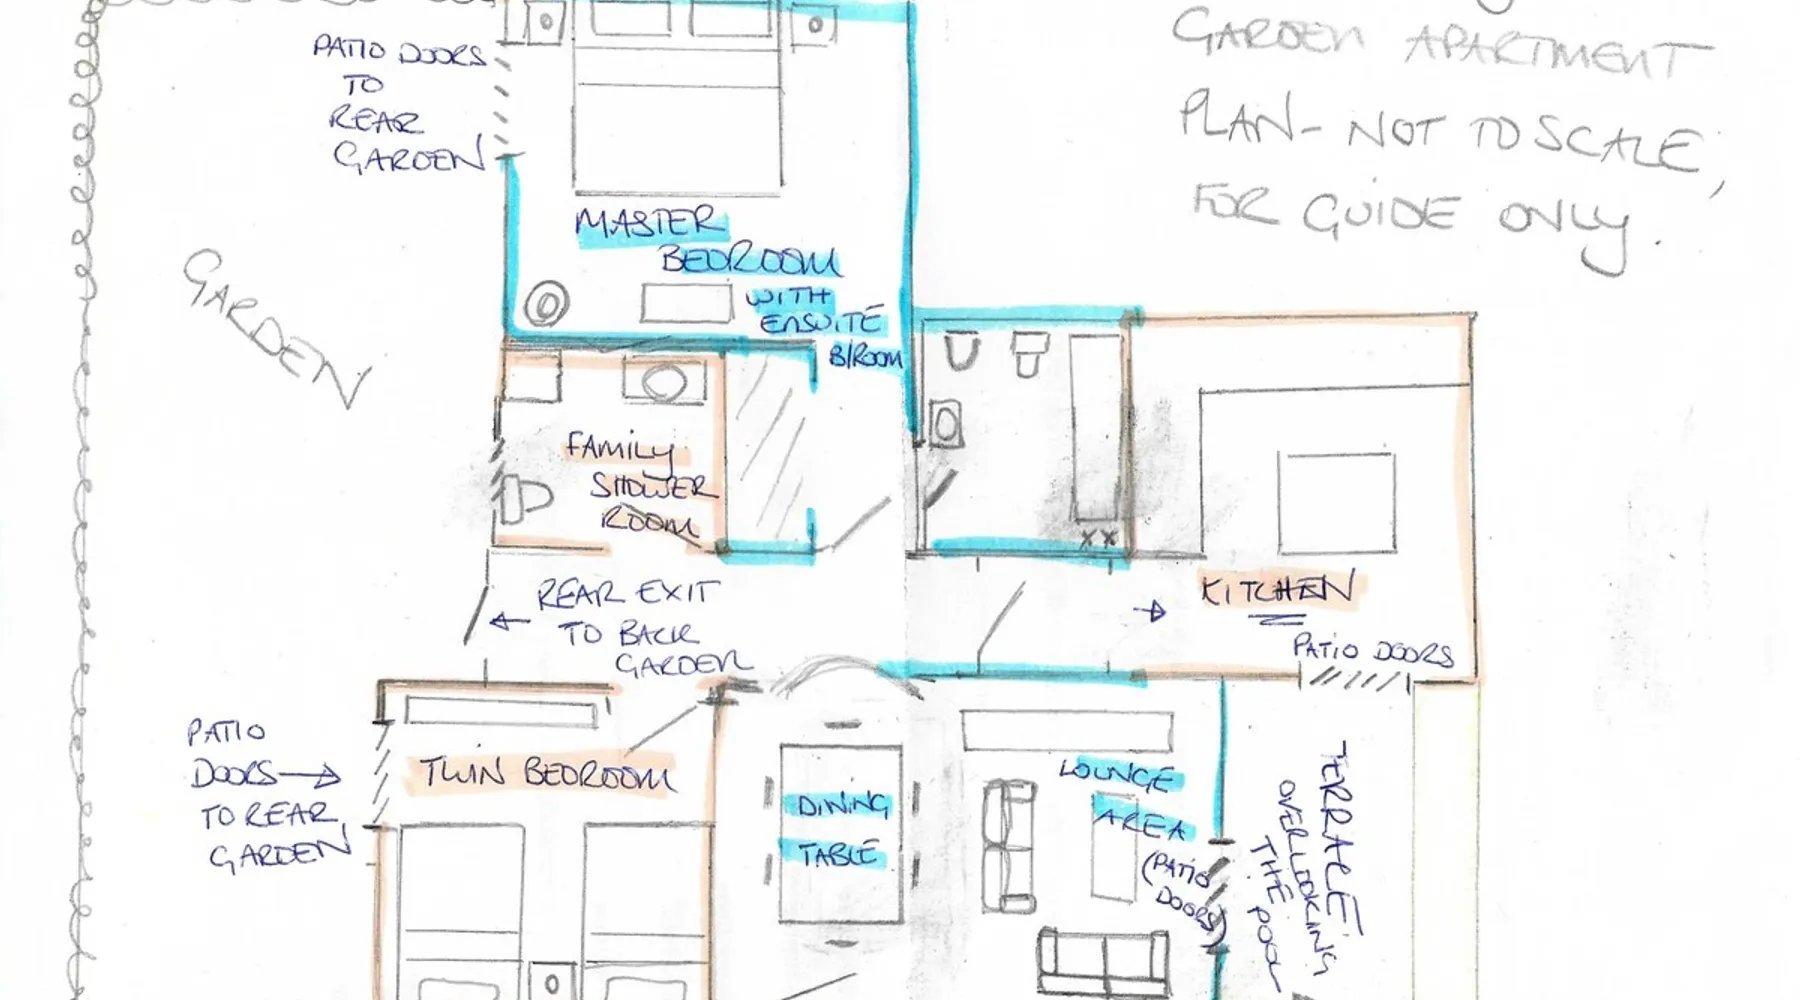 GARDEN APARTMENT
PLAN - NOT TO SCALE,
FOR GUIDE ONLY.
PATIO DOORS
TO
REAR
GARDEN
MASTER
BEDROOM
WITH
ENSUITE
B/ROOM
GARDEN
FAMILY
SHOWER
ROOM
REAR EXIT
TO BACK
GARDEN
KITCHEN
PATIO DOORS
PATIO
DOORS
TO REAR
GARDEN
TWIN BEDROOM
DINING
TABLE
LOUNGE
AREA
(PATIO
DOORS)
TERRACE
OVERLOOKING
THE POOL